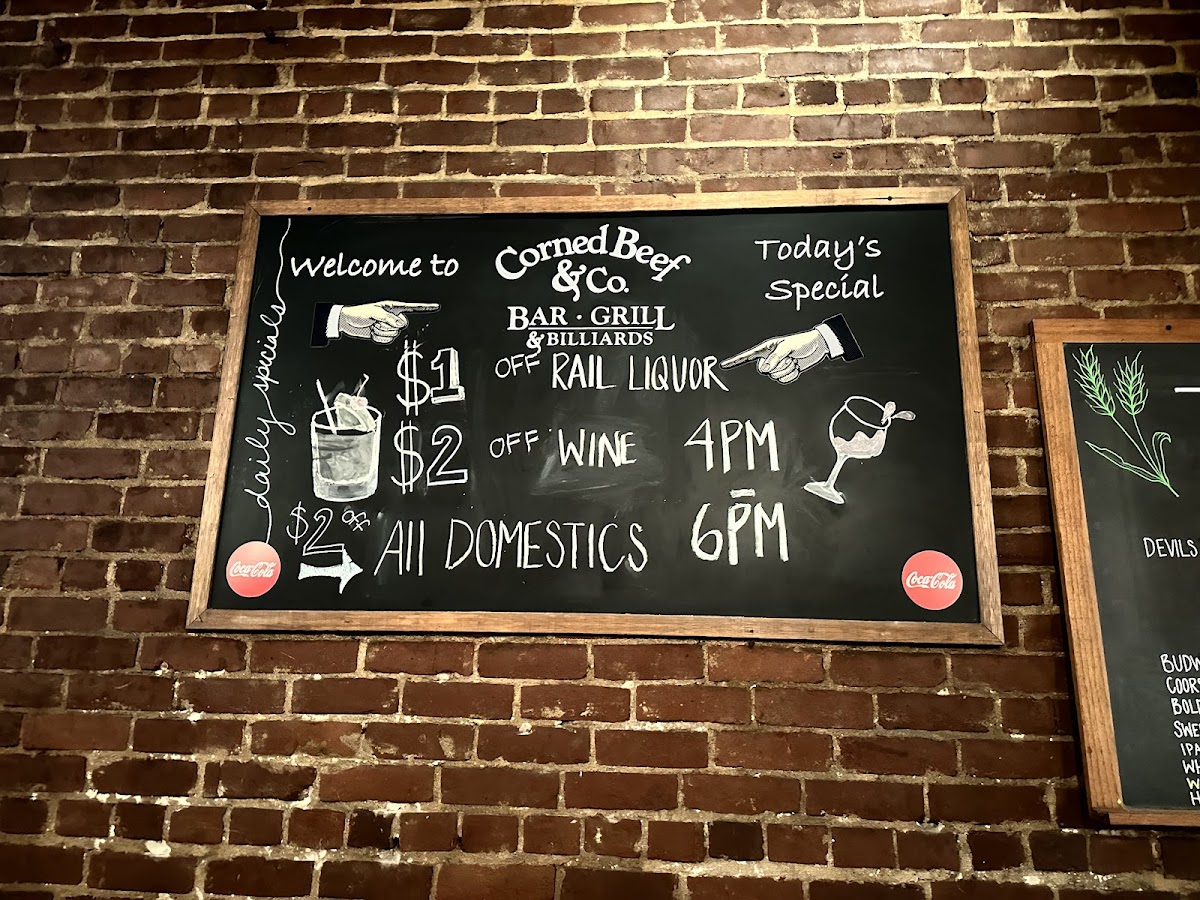 daily specials
Welcome to
Corned Beef
& Co.
BAR · GRILL
& BILLIARDS
Today's
Special
$1 OFF RAIL LIQUOR
$2 OFF WINE
4PM
–
6PM
$2 off All DOMESTICS
Coca-Cola
Coca-Cola
DEVILS
BUDW
COORS
BOLD
SWE
IPA
WH
W
H